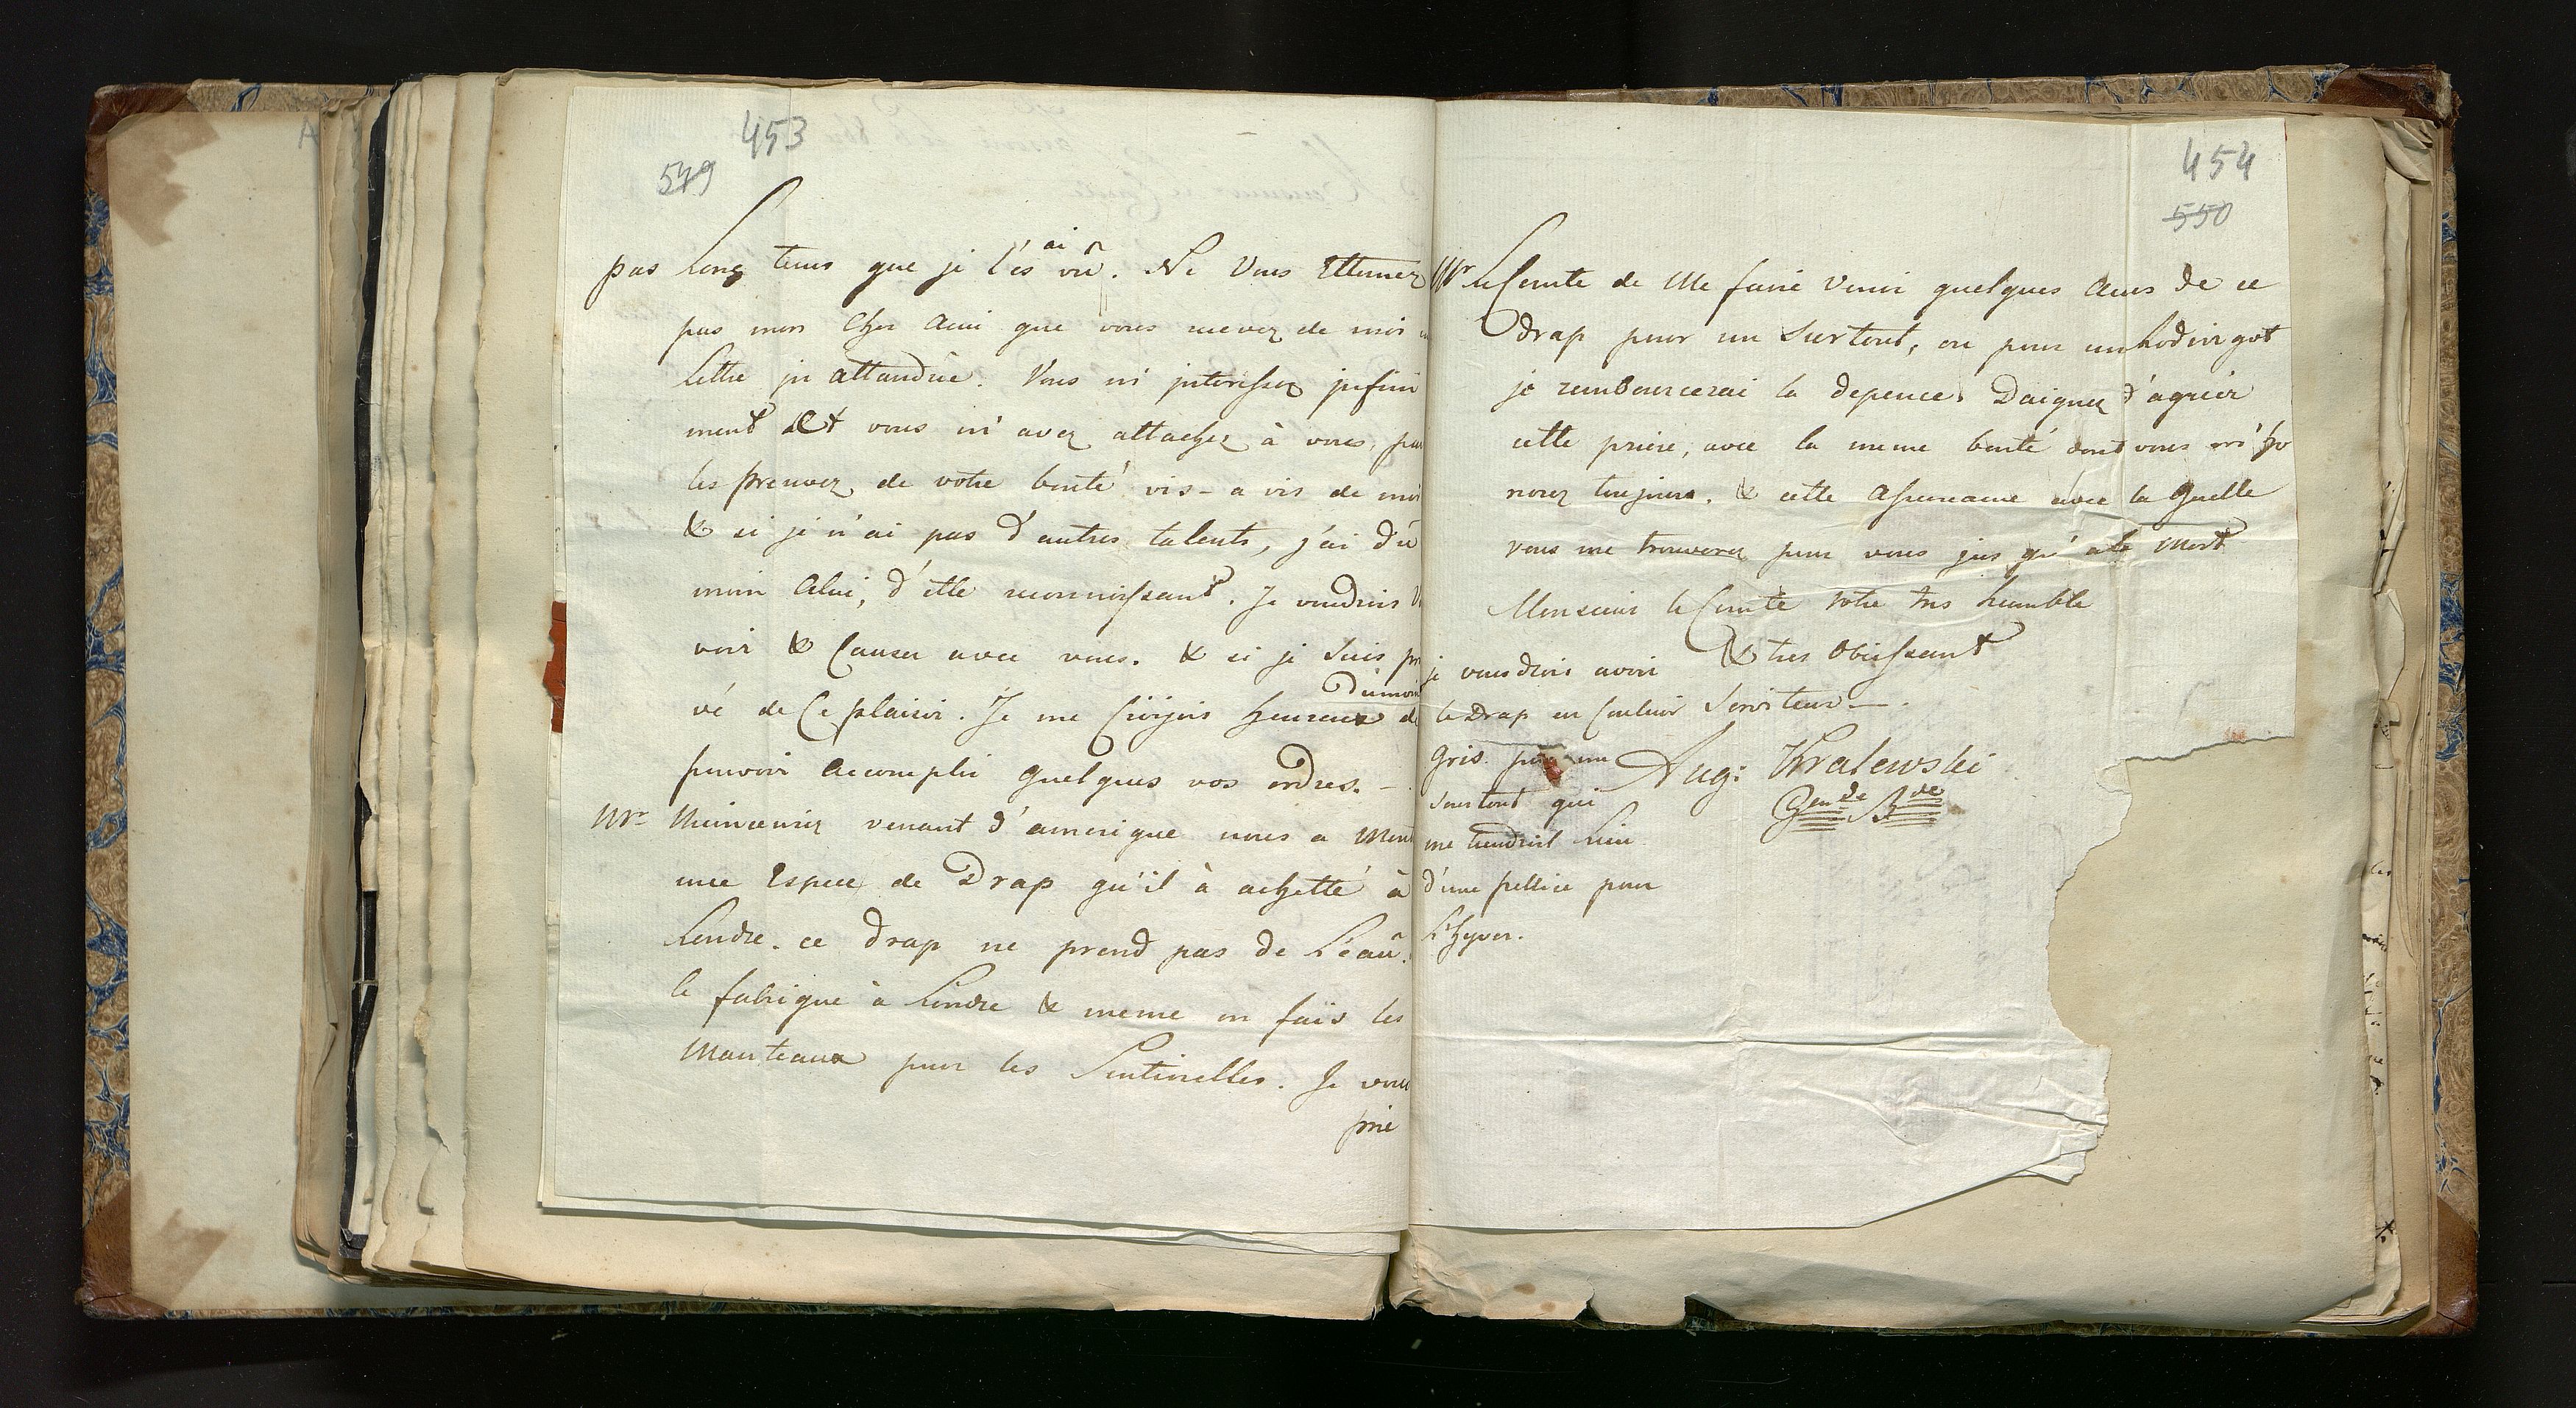 453
549
pas long tems que je l'es ai vû. Ne Vous Ettonnez
pas mon Cher Ami que vous recevez de moi
lettre in attandûe. Vous m'interessez infini
ment et vous m'avez attachez à vous, par
les preuvez de votre bonté vis-a vis de moi
& si je n'ai pas d'autres talents, j'ai dû
moin Celui, d'ette reconnoissant. Je voudrois
voir & Causer avec vous. & si je suis pri
vé de Ce plaisir. Je me Croyois heureux dumoin de
pouvoir accomplir quelques vos ordres. -
Mr Niemcewicz venant d'amerique nous a Mont
une Espece de Drap qu'il à achetté à
Londre. ce drap ne prend pas de l'éau.
le fabrique à Londre & meme on fais les
Manteaux pour les Sentinelles. Je vous
prie
454
550
Mr le Comte de Me faire venir quelques aunes de ce
drap pour un Surtout, ou pour un Rodingot
je rembourcerai la depence. Daignez d'agréer
cette priere, avec la meme bonté dont vous m'ho
norez toujours. & cette assurance avec la quelle
vous me trouverez pour vous jus qu'a la Mort
Monsieur le Comte votre tres humble
& tres Obeissant
Serviteur —.
Aug: Kralewski
Gen de Bde
je vousdrois avoir
le Drap en Couleur
Gris. pour un
surtout qui
me tiendroit lieu
d'une pellice pour
l'hyver.